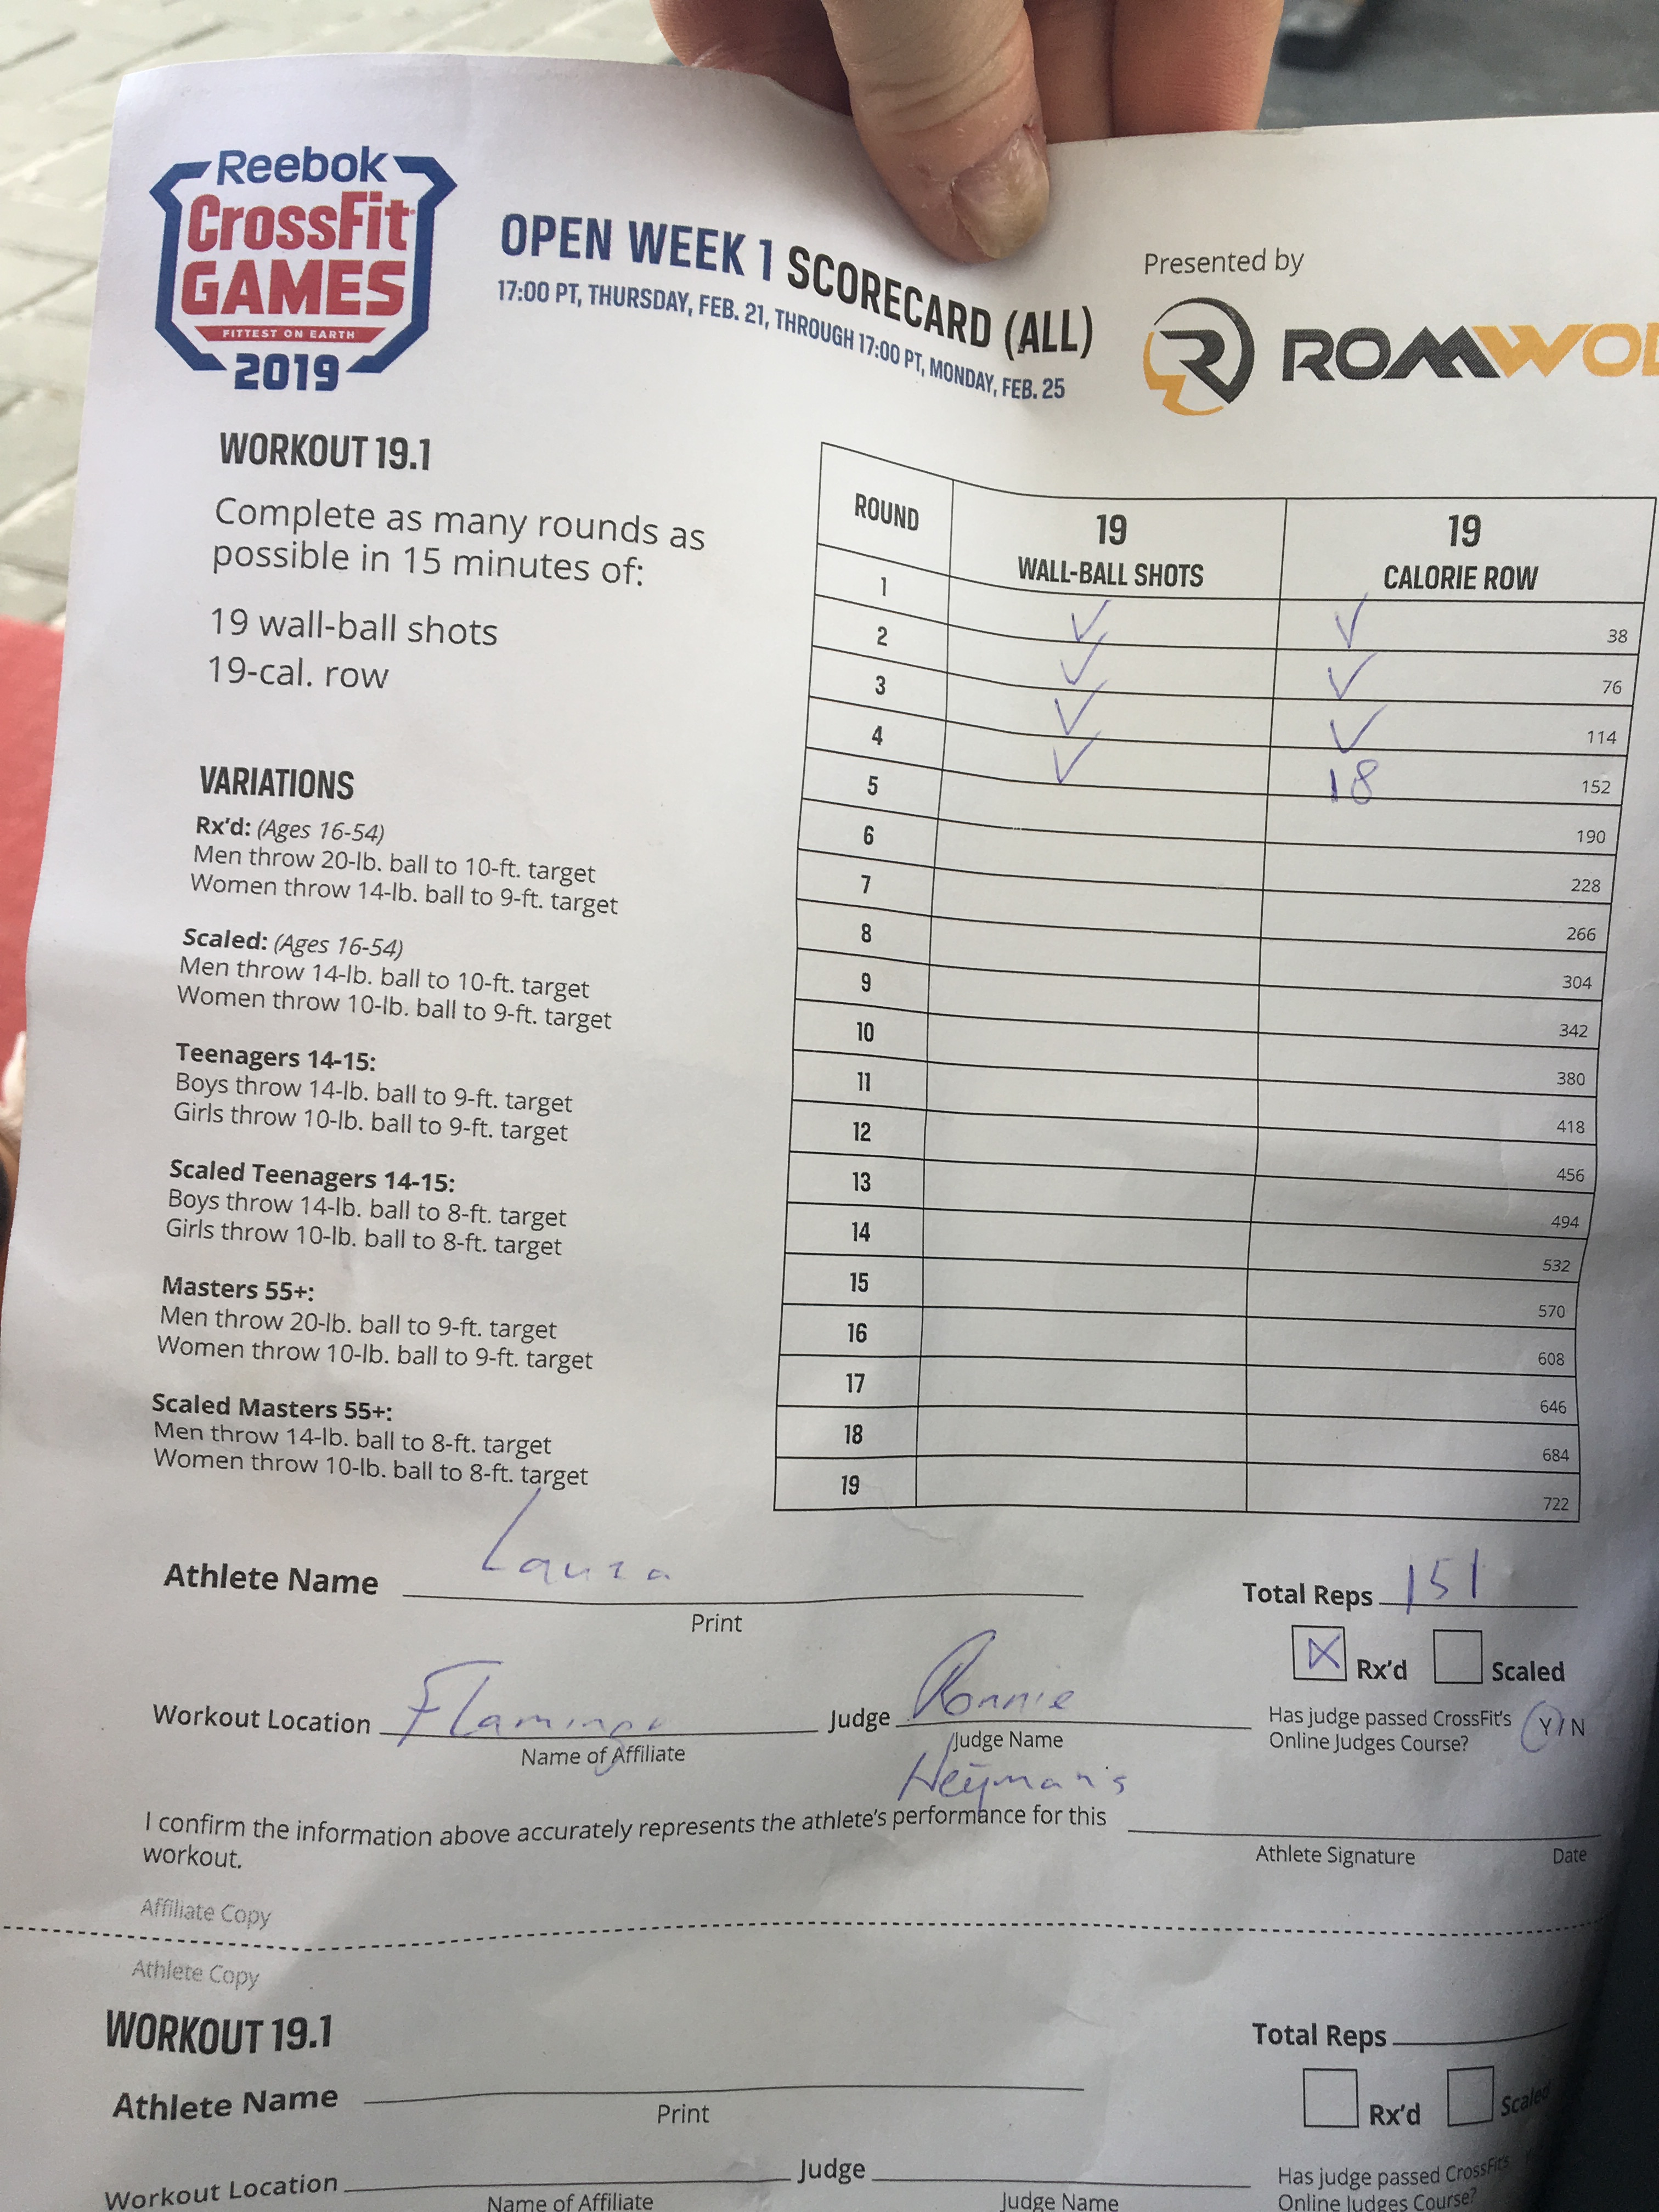 Reebok
CrossFit
GAMES
FITTEST ON EARTH
2019
OPEN WEEK 1 SCORECARD (ALL)
17:00 PT, THURSDAY, FEB. 21, THROUGH 17:00 PT, MONDAY, FEB. 25
Presented by
R ROMWOD
WORKOUT 19.1
Complete as many rounds as
possible in 15 minutes of:
19 wall-ball shots
19-cal. row
VARIATIONS
Rx'd: (Ages 16-54)
Men throw 20-lb. ball to 10-ft. target
Women throw 14-lb. ball to 9-ft. target
Scaled: (Ages 16-54)
Men throw 14-lb. ball to 10-ft. target
Women throw 10-lb. ball to 9-ft. target
Teenagers 14-15:
Boys throw 14-lb. ball to 9-ft. target
Girls throw 10-lb. ball to 9-ft. target
Scaled Teenagers 14-15:
Boys throw 14-lb. ball to 8-ft. target
Girls throw 10-lb. ball to 8-ft. target
Masters 55+:
Men throw 20-lb. ball to 9-ft. target
Women throw 10-lb. ball to 9-ft. target
Scaled Masters 55+:
Men throw 14-lb. ball to 8-ft. target
Women throw 10-lb. ball to 8-ft. target
ROUND 19 WALL-BALL SHOTS 19 CALORIE ROW
1 ✓ ✓ 38
2 ✓ ✓ 76
3 ✓ ✓ 114
4 ✓ 18 152
5 190
6 228
7 266
8 304
9 342
10 380
11 418
12 456
13 494
14 532
15 570
16 608
17 646
18 684
19 722
Athlete Name Laura
Print
Total Reps 151
X Rx'd Scaled
Workout Location Flamingo Judge Ronnie
Name of Affiliate Judge Name
Heymans
Has judge passed CrossFit's
Online Judges Course? Y/N
I confirm the information above accurately represents the athlete's performance for this
workout.
Athlete Signature Date
Affiliate Copy
Athlete Copy
WORKOUT 19.1
Total Reps
Athlete Name
Print
Rx'd Scaled
Workout Location Judge
Name of Affiliate Judge Name
Has judge passed CrossFit's
Online Judges Course?